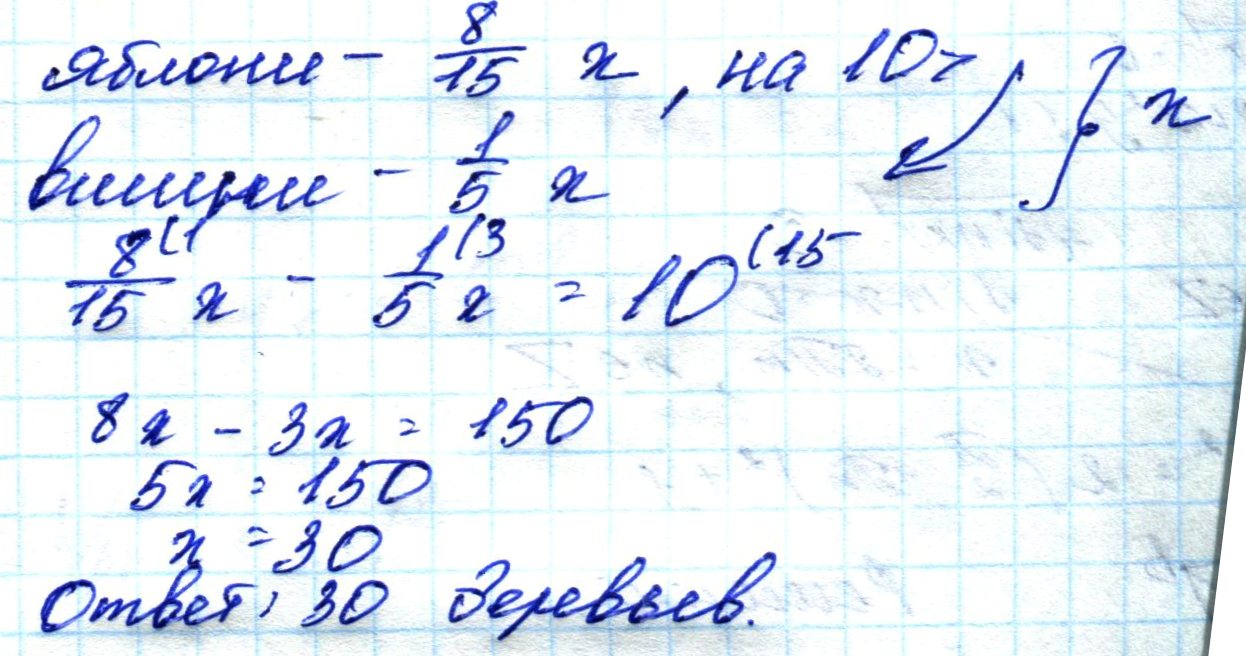 яблони - 8/15 x, на 10> } ? x
вишни - 1/5 x
8(1/15 x - 1(3/5 x = 10(15
8x - 3x = 150
5x = 150
x = 30
Ответ: 30 деревьев.